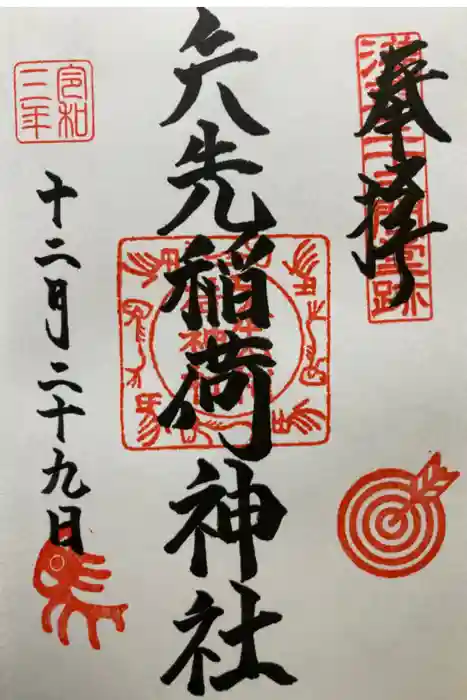 奉拝
浅草三十三間堂跡
矢先稲荷神社
令和
三年
十二月二十九日